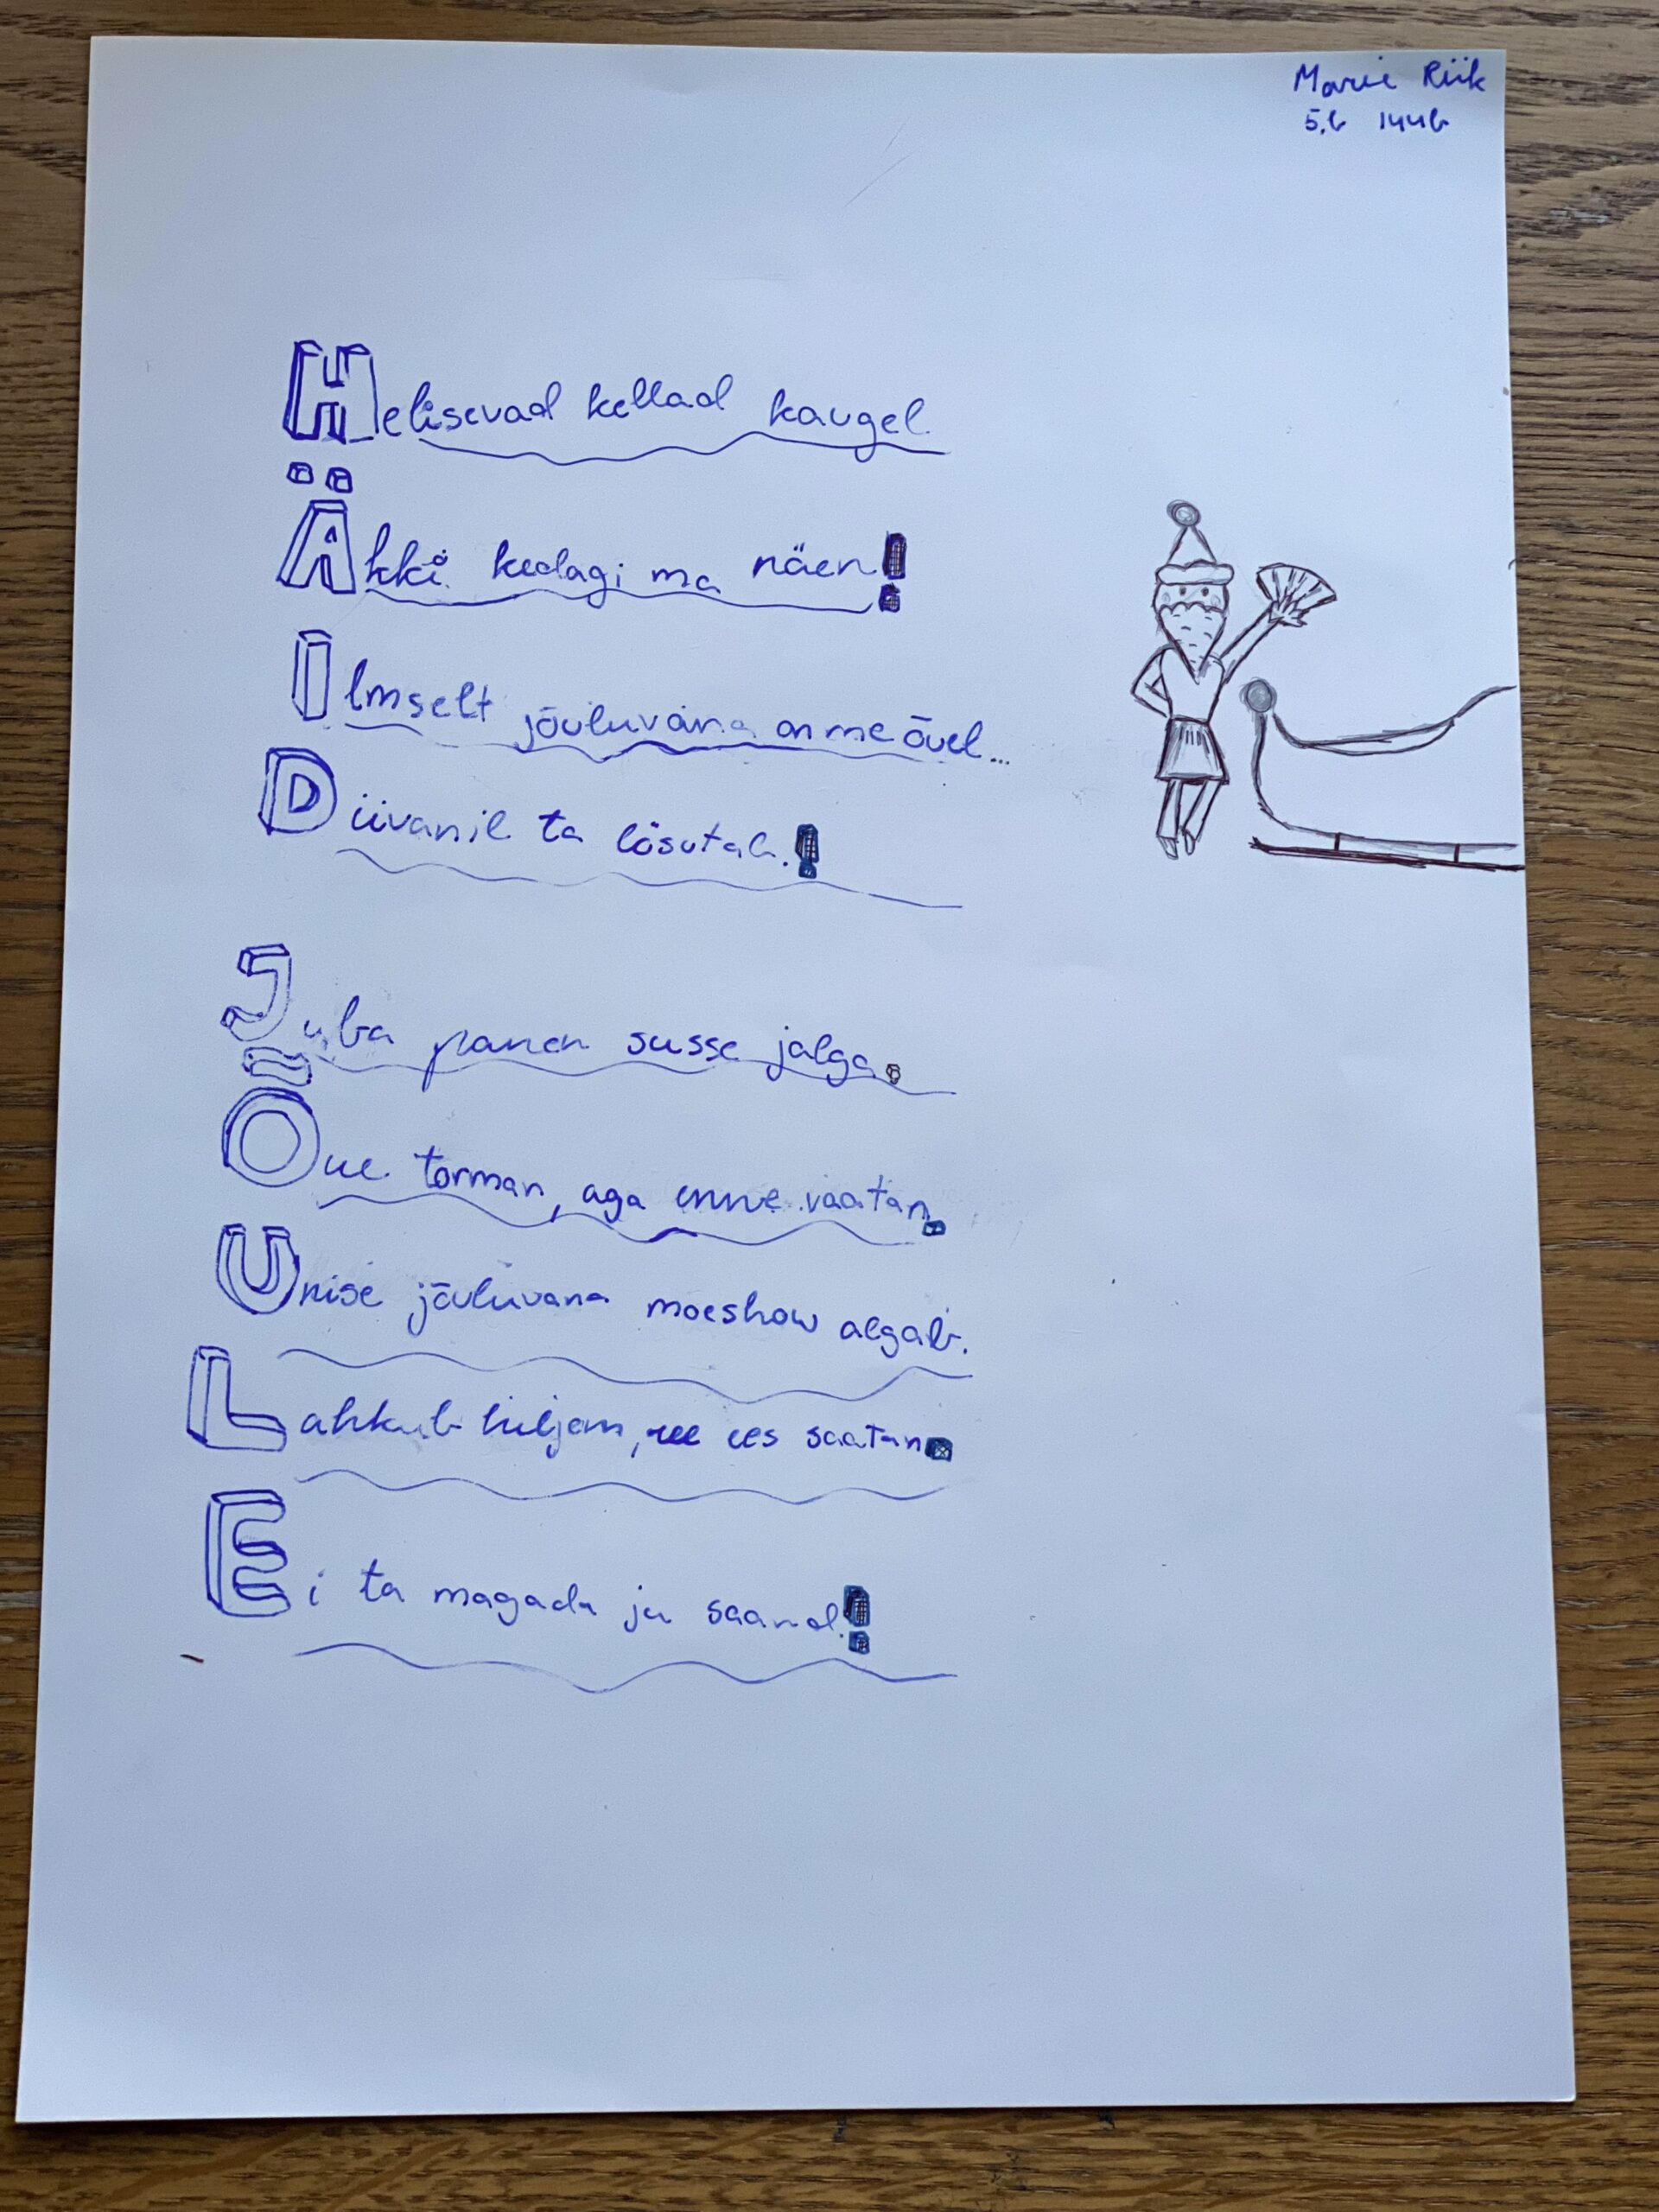 Marie Riik
5.b
Helisevad kellad kaugel
Äkki kedagi ma näen!
Ilmselt jõuluvana on me õuel...
Diivanil ta lösutab.!
Juba panen susse jalga.
Õue torman, aga enne vaatan.
Unise jõuluvana moeshow algab.
Lahkub hiljem, ees saatan.
Ei ta magada ju saand.!